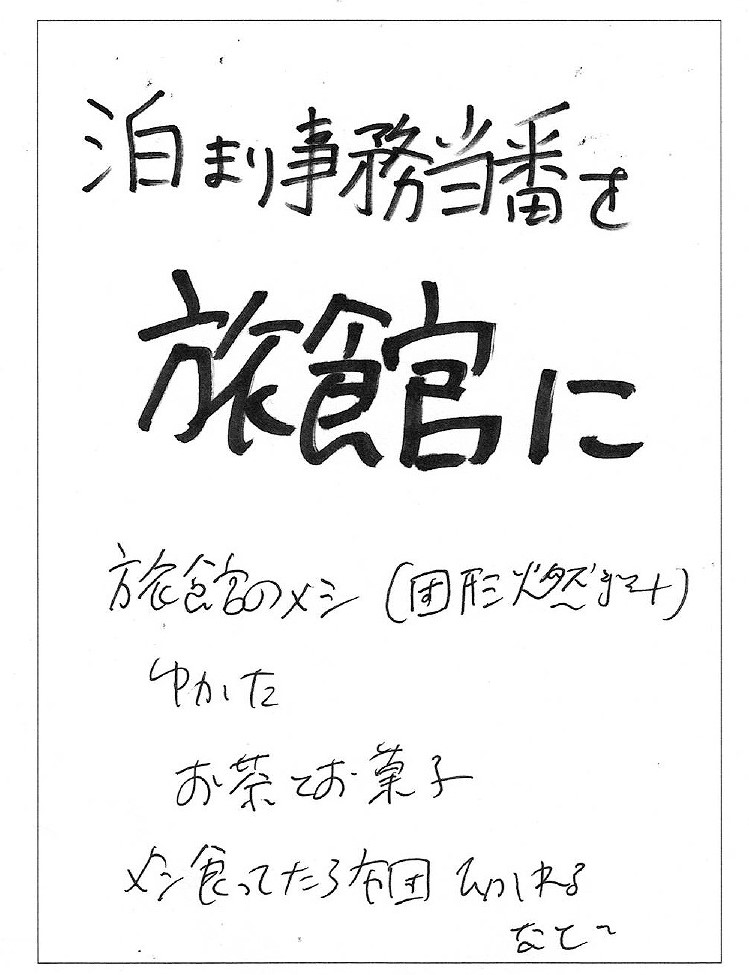 泊まり事務当番を
旅館に
旅館のメシ (固形燃料)
ゆかた
お茶とお菓子
メシ食ってたら布団 ひかれる
など